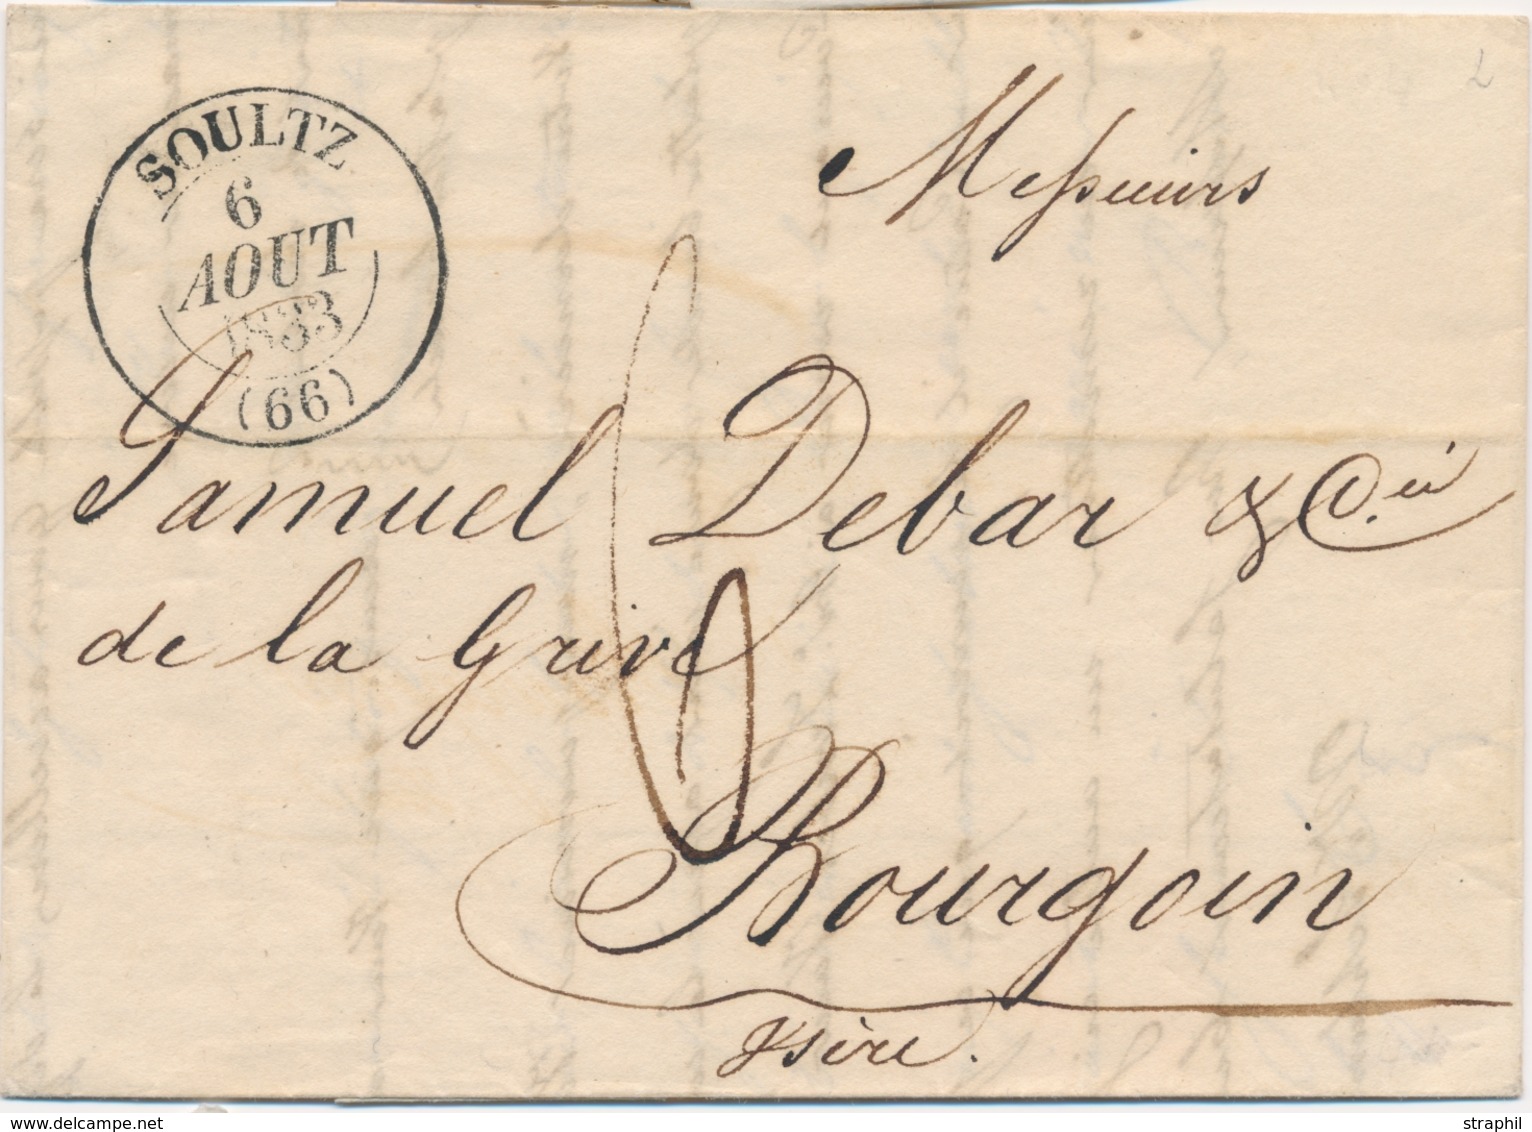 SOULTZ
6
AOUT
1833
(66)
Messieurs
Samuel Debar & Cie
de la Grive
Bourgoin
Isère.
www.delcampe.net
straphil